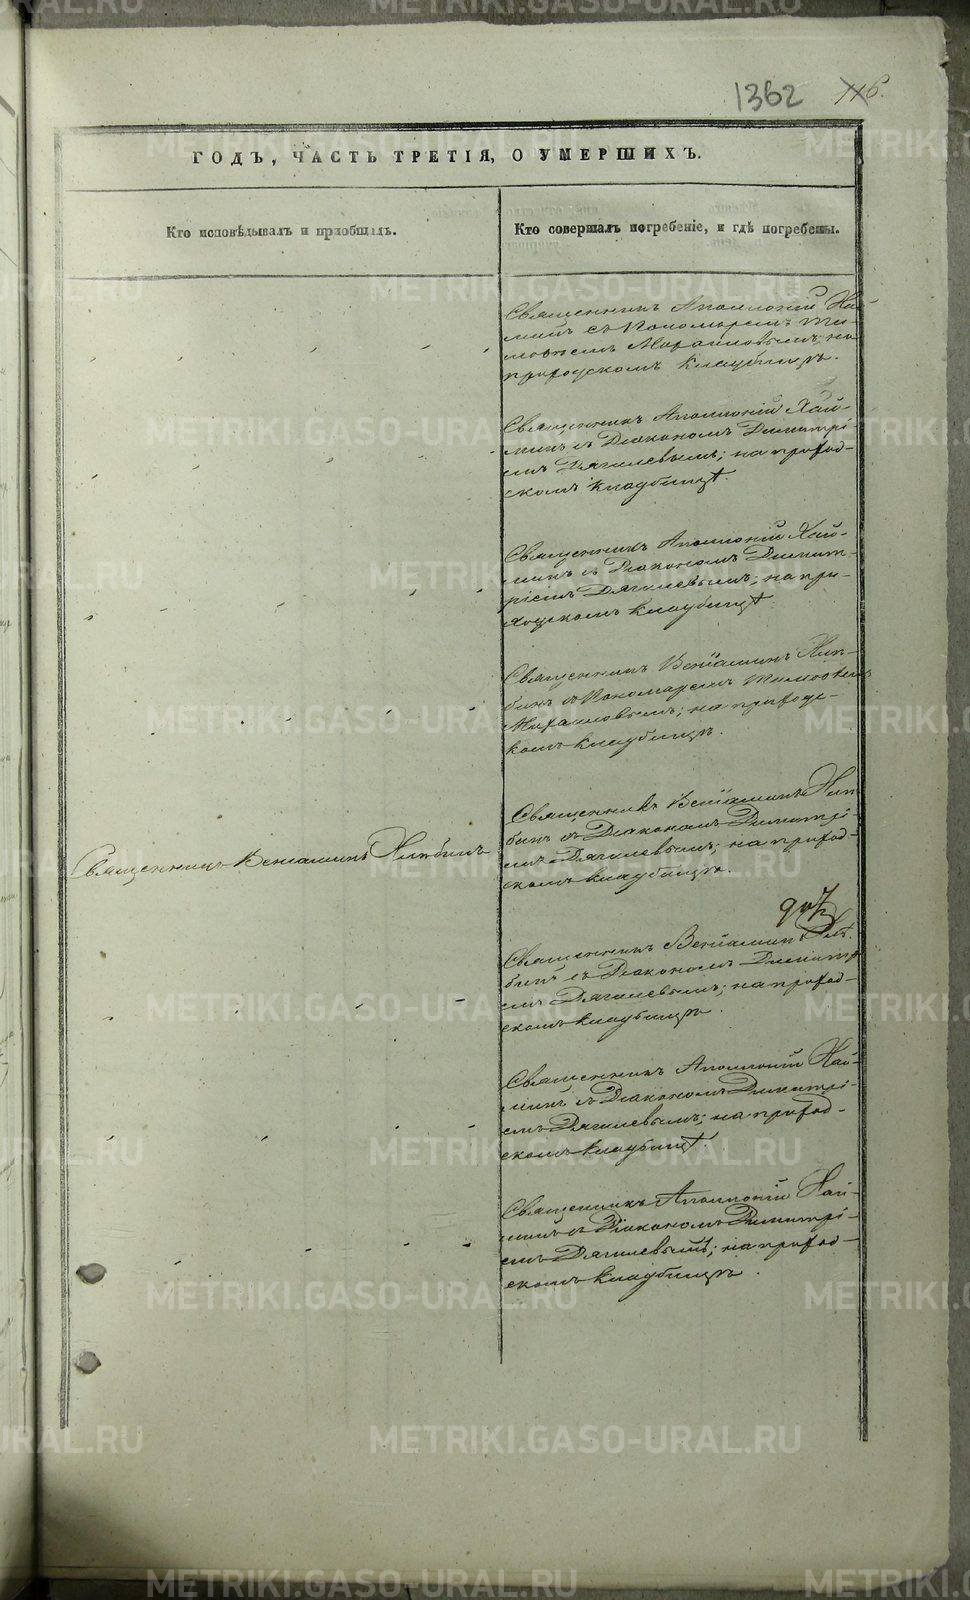 1362 116.
ГОДЪ, ЧАСТЬ ТРЕТІЯ, О УМЕРШИХЪ.
Кто исповѣдывалъ и пріобщалъ.
Кто совершалъ погребеніе, и гдѣ погребены.
Священникъ Аполлоній Хай-
минъ съ Пономаремъ Тимо-
Михайловымъ; на
приходскомъ кладбищѣ.
Священникъ Аполлоній Хай-
минъ съ Діакономъ Димитрі-
емъ Дягилевымъ; на приход-
скомъ кладбищѣ.
Священникъ Аполлоній Хай-
минъ съ Діакономъ Димит-
ріемъ Дягилевымъ; на при-
ходскомъ кладбищѣ.
Священникъ Веніаминъ
съ Пономаремъ
Михайловымъ; на приходс-
комъ кладбищѣ.
Священникъ Веніаминъ
съ Діакономъ Димитрі-
емъ Дягилевымъ; на приход-
скомъ кладбищѣ.
Священникъ Веніаминъ
Священникъ Веніаминъ
съ Діакономъ Димитрі
емъ Дягилевымъ; на приход-
скомъ кладбищѣ.
Священникъ Аполлоній Хай-
минъ съ Діакономъ Димитрі-
емъ Дягилевымъ; на приход-
скомъ кладбищѣ.
Священникъ Аполлоній Хай-
минъ съ Діакономъ Димитрі-
емъ Дягилевымъ; на приход-
скомъ кладбищѣ.
METRIKI.GASO-URAL.RU